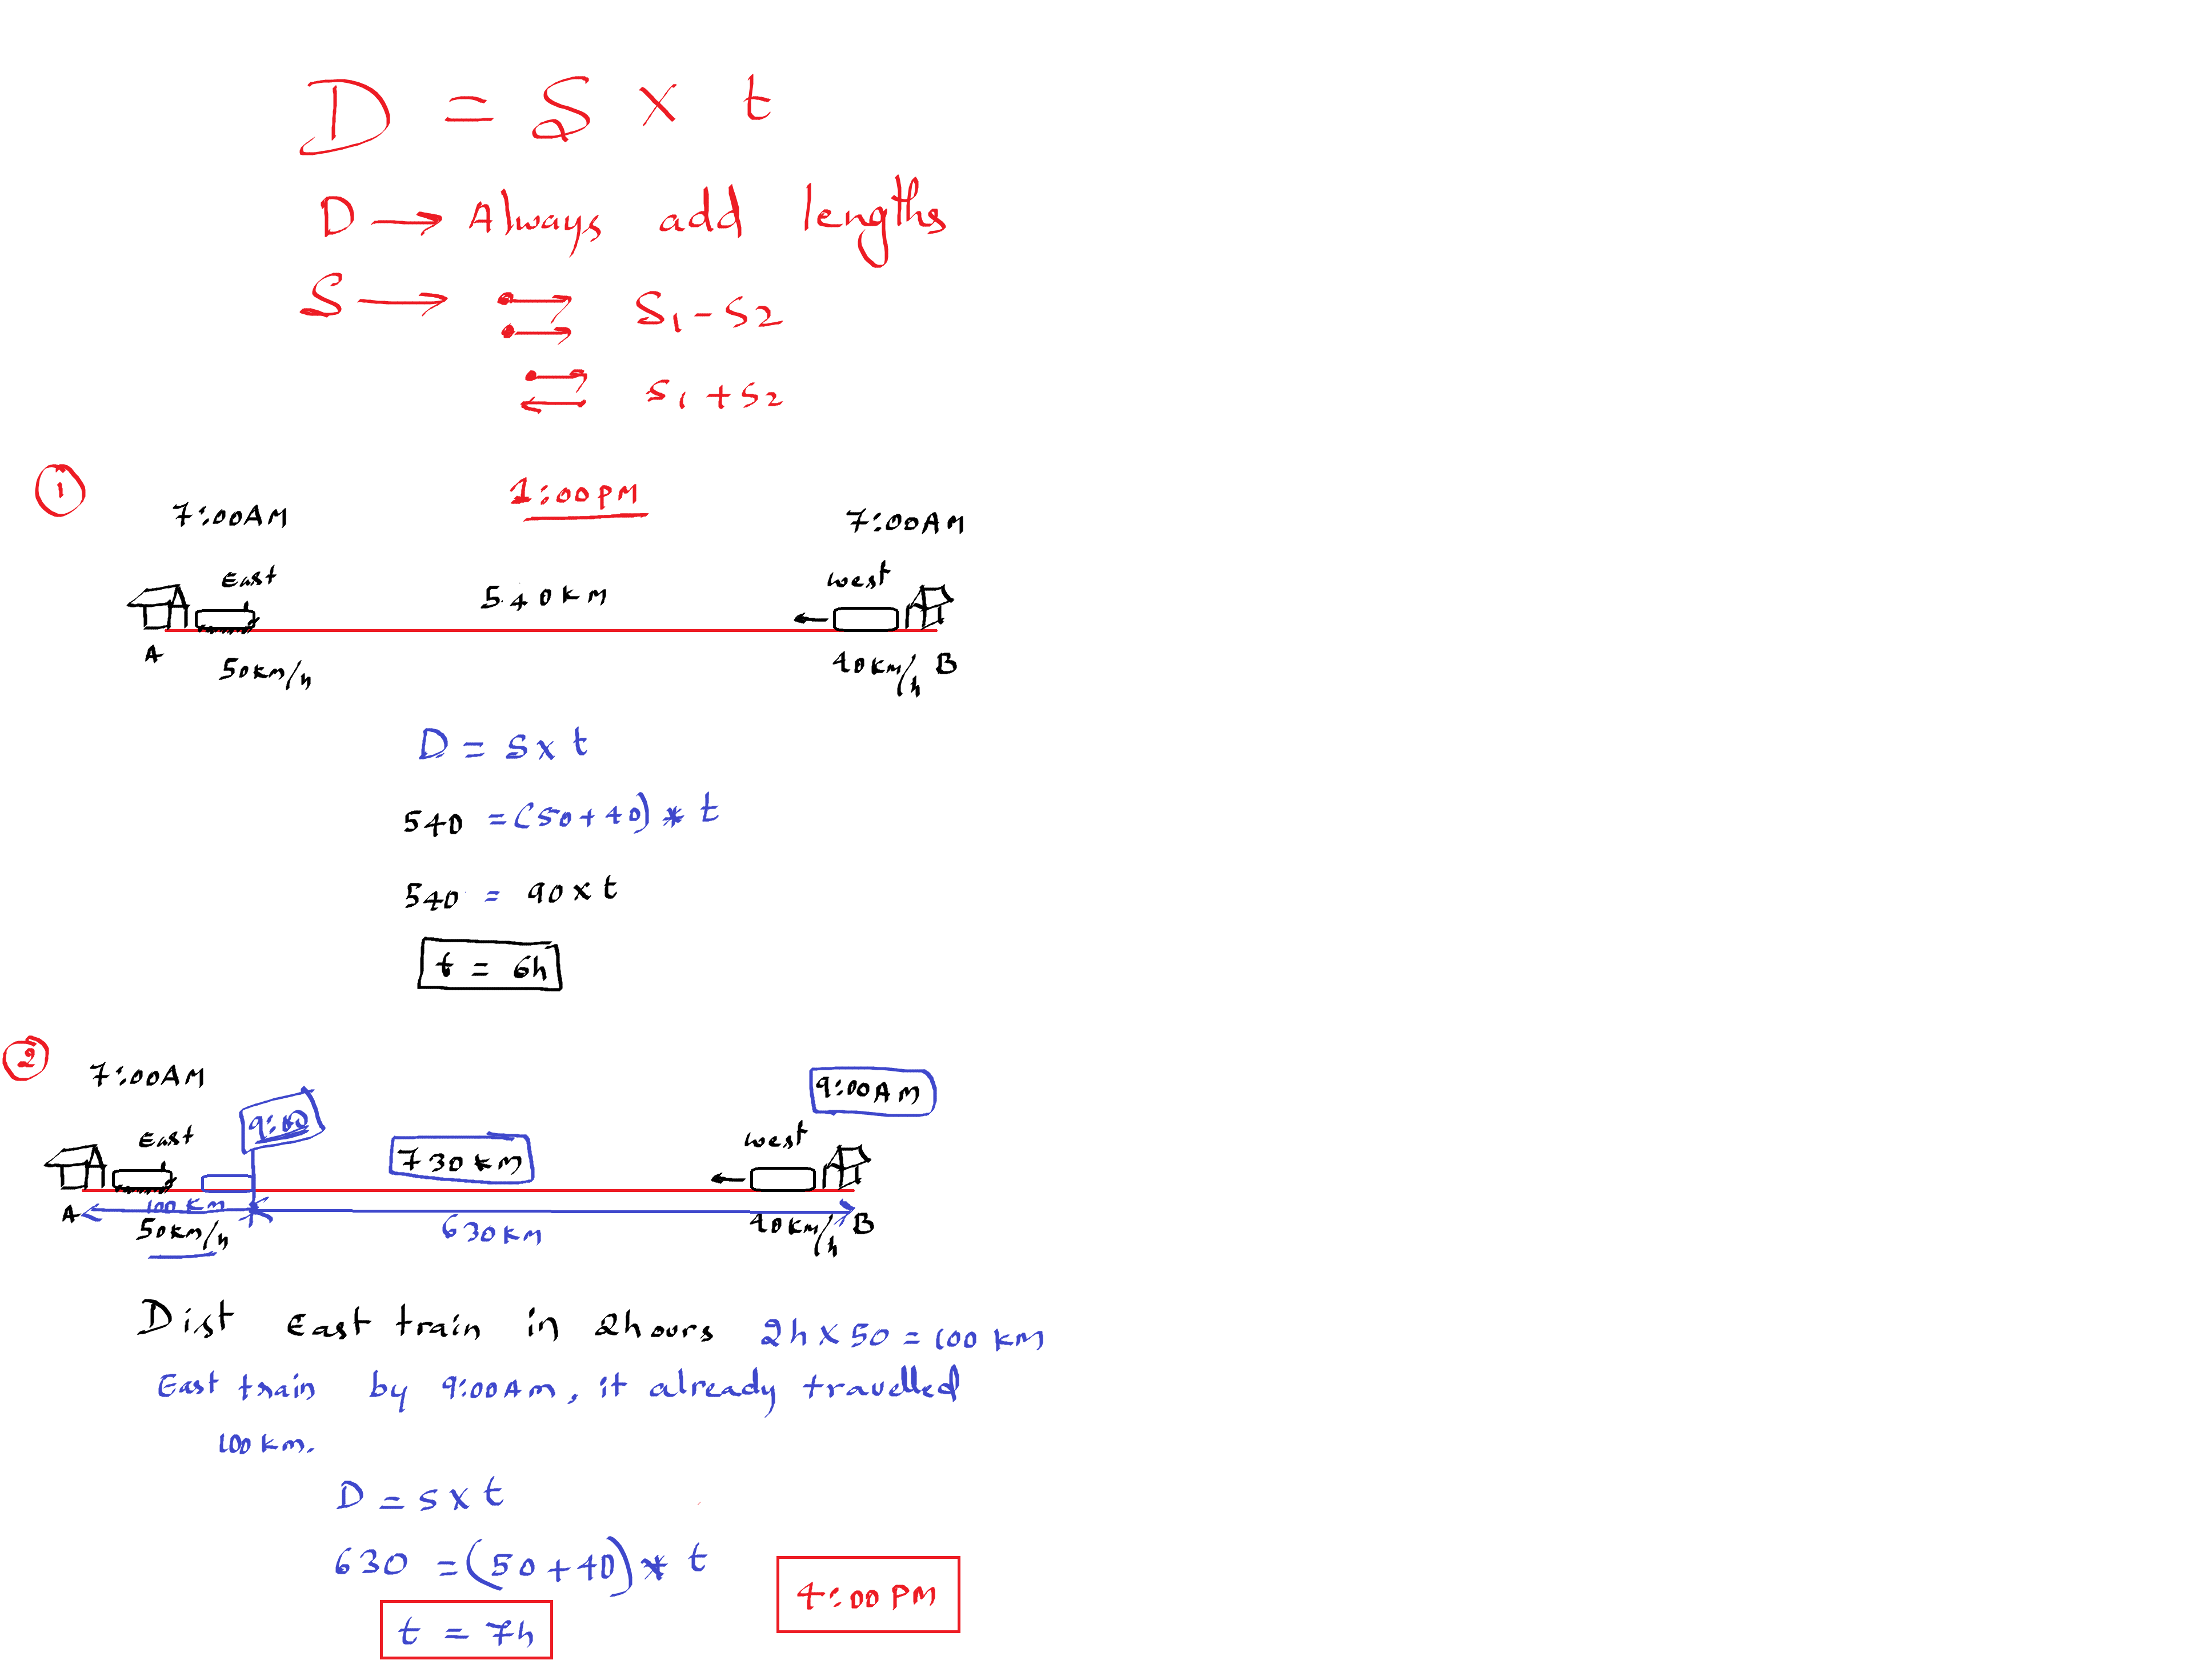 D = S × t
D → Always add lengths
S → S1 - S2
S1 + S2
1
7:00AM 1:00PM 7:00AM
East 540km west
A 50km/h 40km/h B
D = s × t
540 = (50+40) * t
540 = 90 × t
t = 6h
2
7:00AM 9:00 9:00AM
East 730km west
100 km
A 50km/h 630km 40km/h B
Dist East train in 2hours 2h × 50 = 100 km
East train by 9:00Am, it already travelled
100 km.
D = s × t
630 = (50+40) * t
t = 7h 4:00 PM